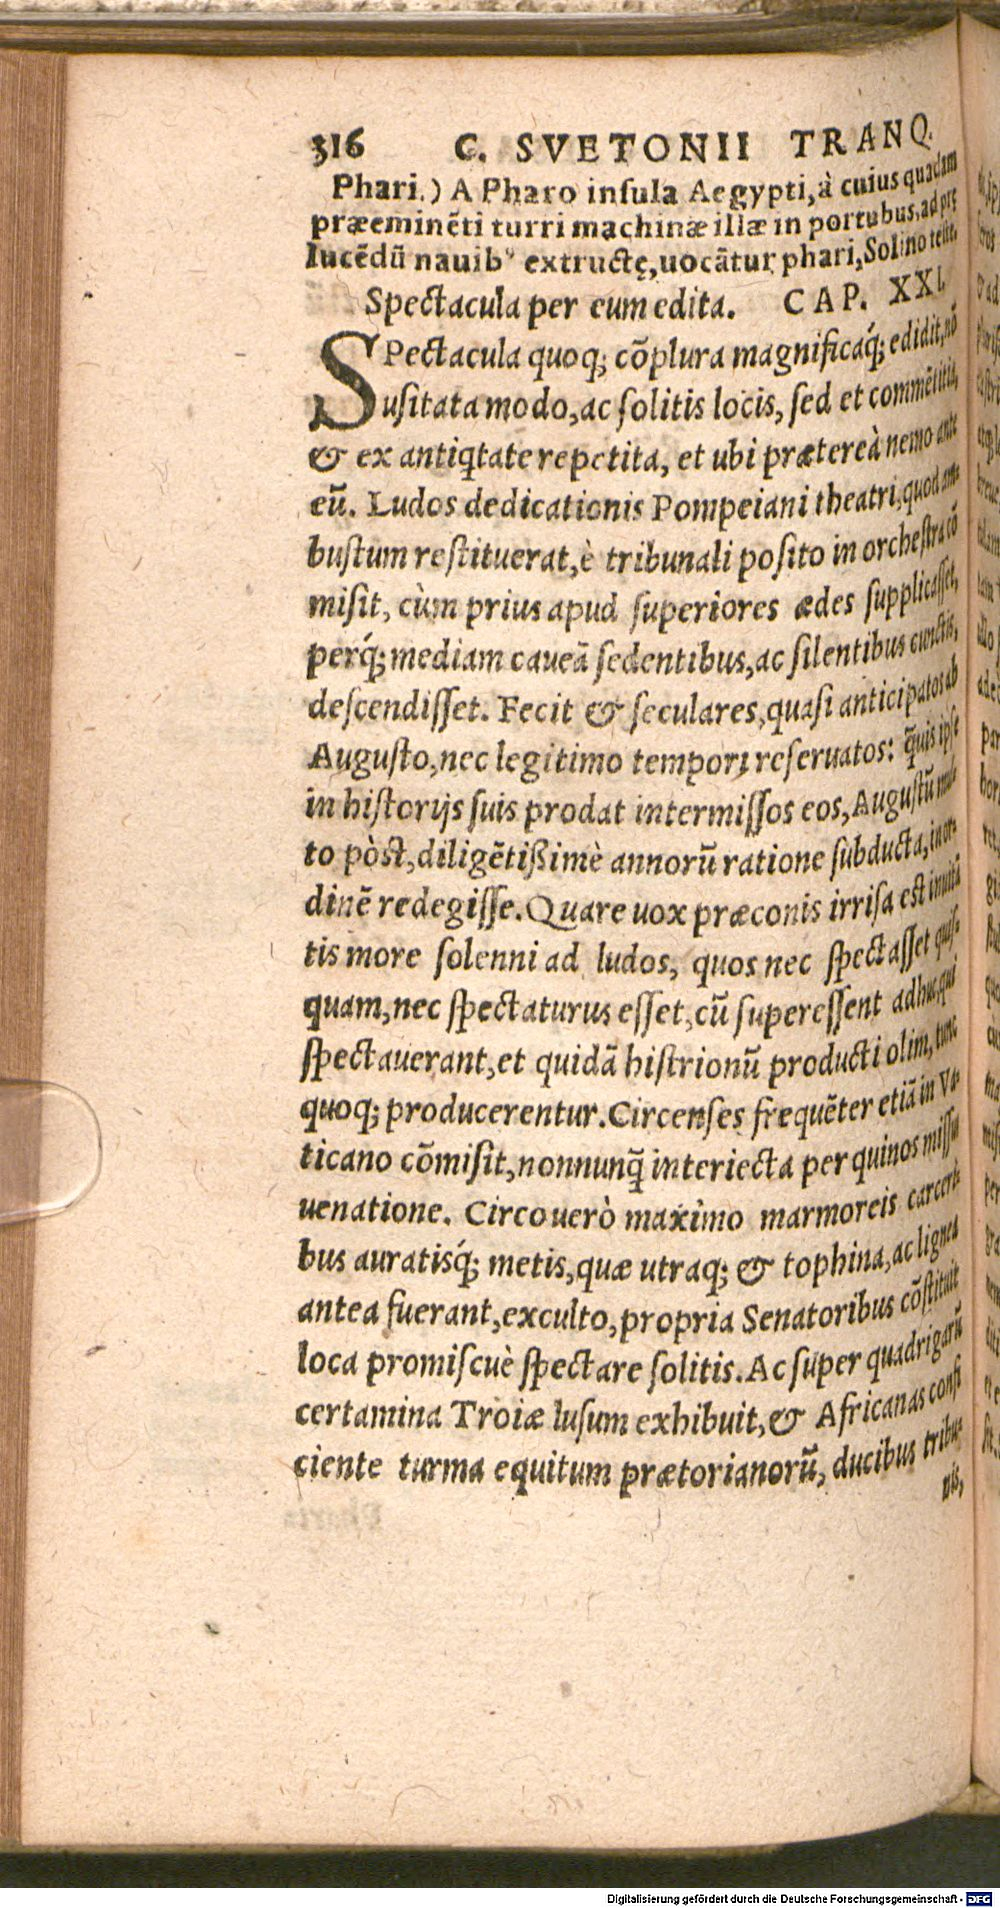 316 C. SVETONII TRANQ.
Phari.) A Pharo inſula Aegypti, à cuius quadam
præeminẽti turri machinæ illæ in portubus, ad prę
lucẽdũ nauibꝰ extructę, uocãtur phari, Solino teſte.
Spectacula per eum edita. CAP. XXI.
SPectacula quoq; cõplura magnificaq́; edidit, nõ
uſitata modo, ac ſolitis locis, ſed et commẽtitia,
& ex antiq̃tate repetita, et ubi prætereà nemo ante
eũ. Ludos dedicationis Pompeiani theatri, quod am-
buſtum reſtituerat, è tribunali poſito in orcheſtra cõ
miſit, cùm prius apud ſuperiores ædes ſupplicaſſet,
perq́; mediam caueã ſedentibus, ac ſilentibus cunctis,
deſcendiſſet. Fecit & ſeculares, quaſi anticipatos ab
Auguſto, nec legitimo tempori reſeruatos: q̃uis ipſe
in hiſtorijs ſuis prodat intermiſſos eos, Auguſtũ mul-
to pòſt, diligẽtißimè annorũ ratione ſubducta, in or-
dinẽ redegiſſe. Quare uox præconis irriſa eſt inuitã
tis more ſolenni ad ludos, quos nec ſpectaſſet quiſ-
quam, nec ſpectaturus eſſet, cũ ſupereſſent adhuc, qui
ſpectauerant, et quidã hiſtrionũ producti olim, tunc
quoq; producerentur. Circenſes frequẽter etiã in Va-
ticano cõmiſit, nonnunq̃ interiecta per quinos miſſus
uenatione. Circo uerò maximo marmoreis carceri-
bus auratisq́; metis, quæ utraq; & tophina, ac lignea
antea fuerant, exculto, propria Senatoribus cõſtituit
loca promiſcuè ſpectare ſolitis. Ac ſuper quadrigarũ
certamina Troiæ luſum exhibuit, & Africanas confi
ciente turma equitum prætorianorũ, ducibus tribu-
nis,
Digitalisierung gefördert durch die Deutsche Forschungsgemeinschaft - DFG